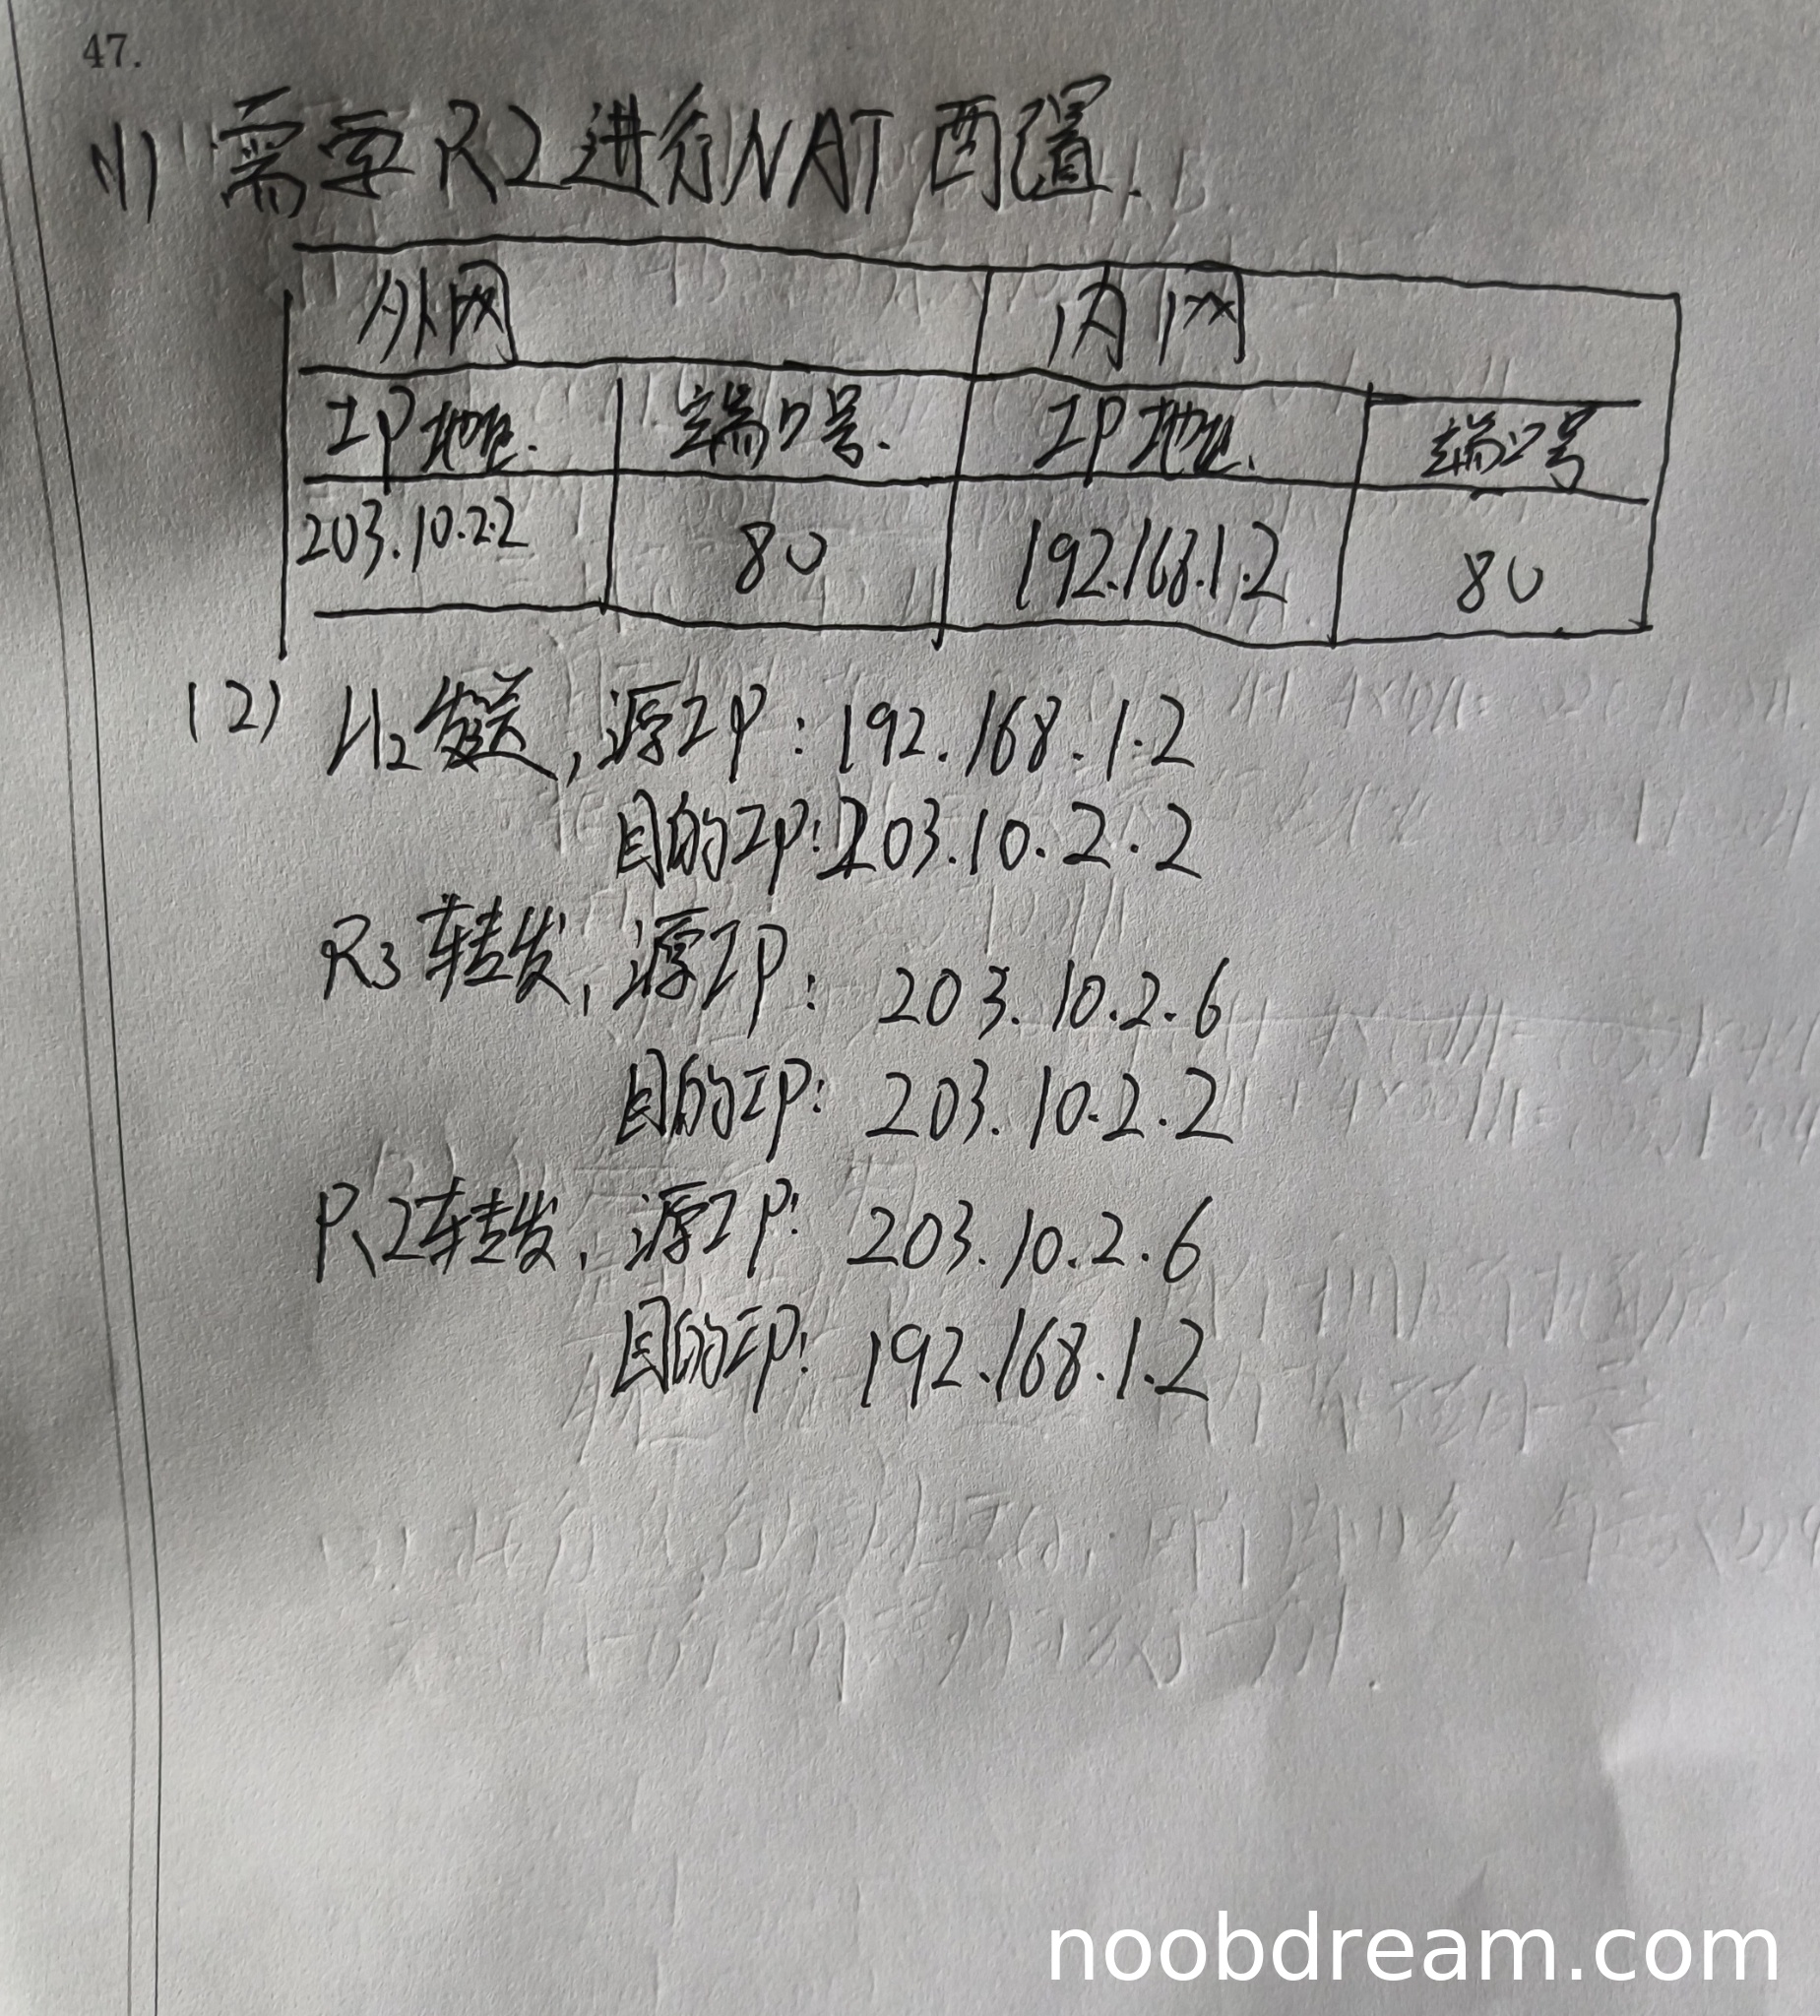 47.
(1) 需要R2进行NAT配置.
外网 内网
IP地址. 端口号. IP地址. 端口号
203.10.2.2 80 192.168.1.2 80
(2) H2发送, 源IP: 192.168.1.2
目的IP: 203.10.2.2
R3转发, 源IP: 203.10.2.6
目的IP: 203.10.2.2
R2转发, 源IP: 203.10.2.6
目的IP: 192.168.1.2
noobdream.com